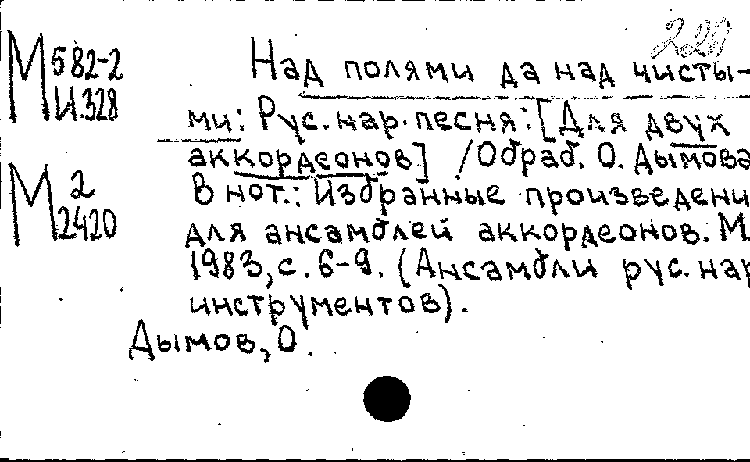 Над полями да над чисты-
М 582-2
И.328
ми: Рус. нар. песня: [Для двух
аккордеонов] / Обраб. О. Дымова
М 2
2420
В нот.: Избранные произведени
для ансамблей аккордеонов. М.
1983, с. 6-9. (Ансамбли рус. нар
инструментов).
Дымов, О.